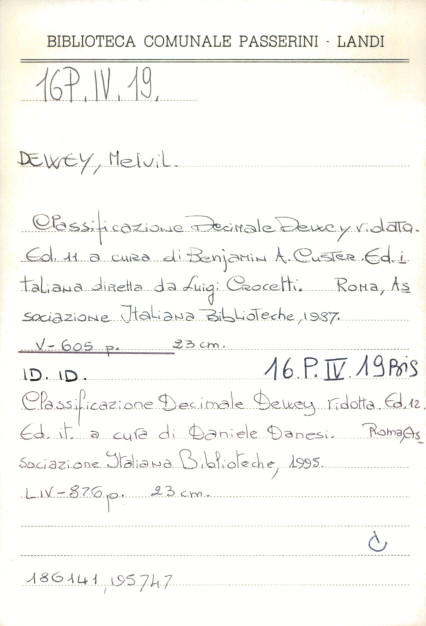 BIBLIOTECA COMUNALE PASSERINI - LANDI
16P.IV.19.
DEWEY, Melvil.
Classificazione Decimale Dewey ridotta.
Ed. 11 a cura di Benjamin A. Custer. Ed. i
taliana diretta da Luigi Crocetti. Roma, As
sociazione Italiana Biblioteche, 1987.
V-605 p. 23 cm.
ID. ID. 16.P.IV.19Bis
Classificazione Decimale Dewey ridotta. Ed.12.
Ed. it. a cura di Daniele Danesi. Roma, As
sociazione Italiana Biblioteche, 1995.
LIV-876 p. 23 cm.
186141, 195747